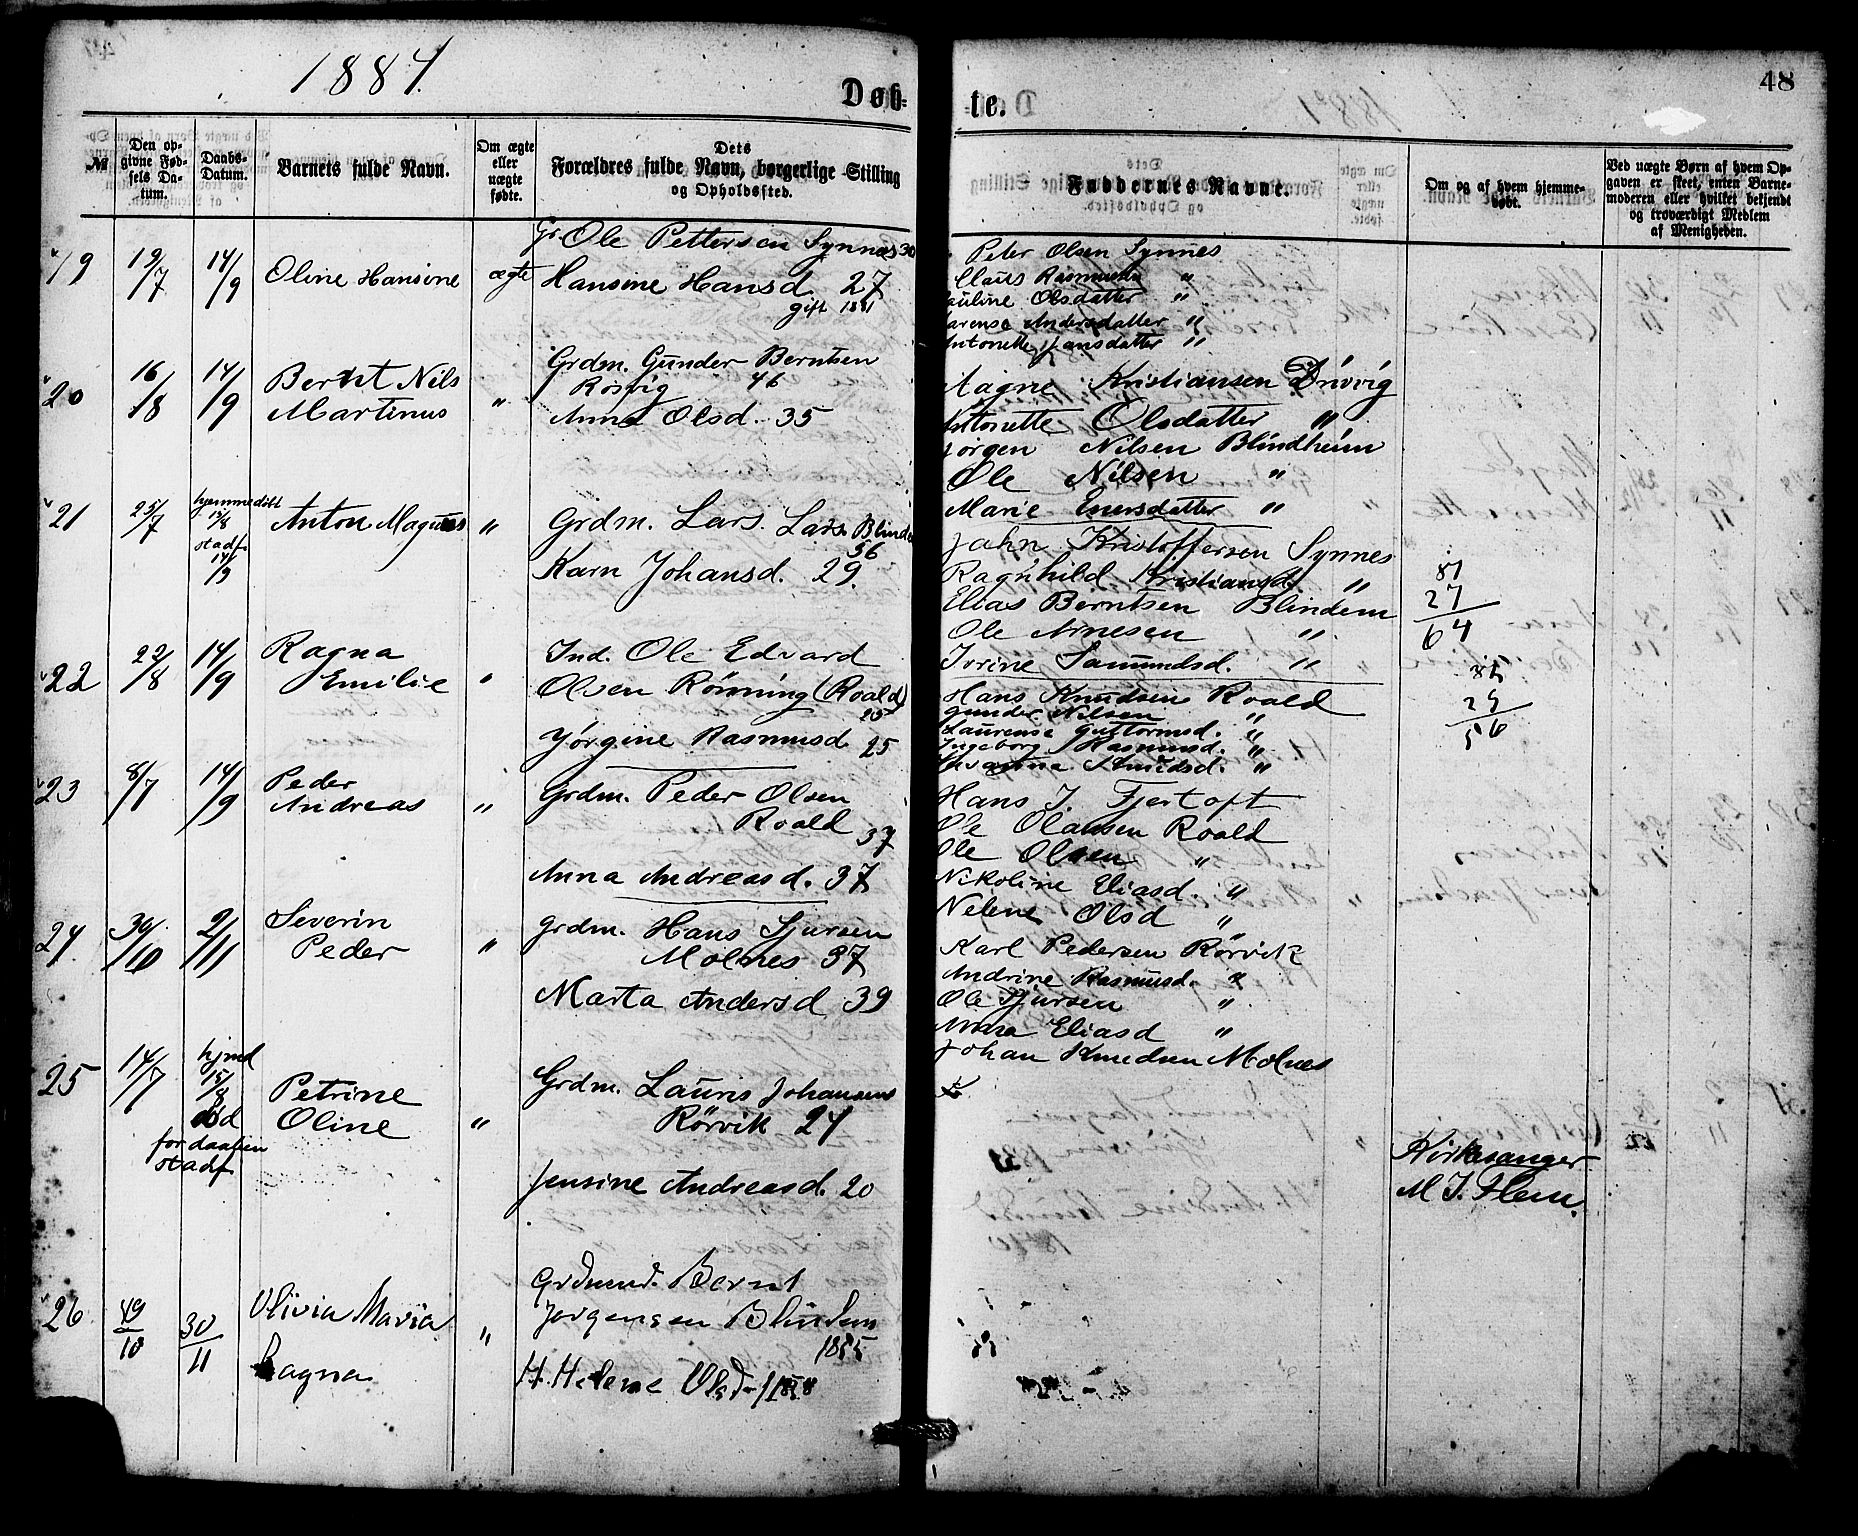 1884.
48
Døb-
te.
№
Den op-
givne Fød-
sels Da-
tum.
Daabs-
Datum.
Barnets fulde Navn.
Om ægte
eller
uægte
fødte.
Dets
Forældres fulde Navn, borgerlige Stilling
og Opholdssted.
Faddernes Navne.
Om og af hvem hjemme-
døbt.
Ved uægte Børn af hvem Op-
gaven er skeet, enten Barne-
moderen eller hvilket bekjendt
og troværdigt Medlem
af Menigheden.
19
19/7
14/9
Oline Hansine
ægte
Gr Ole Pettersen Synnes 30
Hansine Hansd. 27
gift 1881
Peter Olsen Synnes
Claus Rasmussen "
Pauline Olsdatter "
Andersdatter "
Antonette Jansdatter "
20
16/8
14/9
Bernt Nils
Martinus
"
Grdm. Gunder Berntsen
Rösvig 46
Anna Olsd. 35
Kristiansen
Antonette Olsdatter "
Jørgen Nilsen Blindheim
Ole Nilsen "
Marie Enersdatter "
21
25/7
hjemmedöbt
15/8
stadf
14/9
Anton Magnus
"
Grdm. Lars. Lars. Blind
36
Karn Johansd. 29.
Jahn Kristoffersen Synnes
Ragnhild Kristiansd. "
Elias Berntsen Blindem
Ole Arnesen "
Samundsd. "
81
27
64
22
22/8
14/9
Ragna
Emilie
"
Ind. Ole Edvard
Olsen Rönning (Roald)
25
Jörgine Rasmusd. 25
Hans Knudsen Roald
Gunder Nilsen "
Laurense Guttormsd. "
Ingeborg Rasmusd. "
Knudsd. "
85
29
56
23
8/7
14/9
Peder
Andreas
"
Grdm. Peder Olsen
Roald 37
Anna Andreasd. 37
Hans J. Fjertoft
Ole Olausen Roald
Ole Olsen "
Nikoline Eliasd. "
Nelene Olsd "
24.
30/10
2/11
Severin
Peder
"
Grdm. Hans Sjursen
Molnes 37
Marta Andersd 39
Karl Pedersen Rörvik
Andrine Rasmusd. "
Ole Sjursen "
Anna Eliasd "
Johan Knudsen Molnes
25
14/7
hjmd
15/8
död
for daaben
stadf
Petrine
Oline
"
Grdm. Lauris Johansens
Rörvik 24
Jensine Andreasd. 20
Kirkesanger
M J. Flem.
26
19/10
30/11
Olivia Maria
Ragna
"
Grdmand. Bernt
Jorgensen Blindem
1855
H. Helene Olsd. 1858